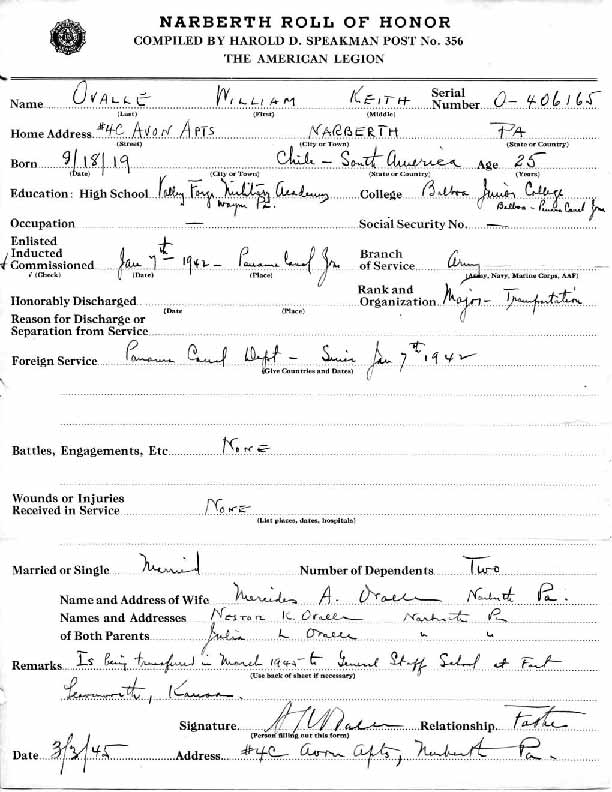 NARBERTH ROLL OF HONOR
COMPILED BY HAROLD D. SPEAKMAN POST No. 356
THE AMERICAN LEGION
Name OVALLE WILLIAM KEITH Serial Number O-406165
(Last) (First) (Middle)
Home Address #4C AVON APTS NARBERTH PA
(Street) (City or Town) (State or Country)
Born 9/18/19 Chile - South America Age 25
(Date) (City or Town) (State or Country) (Years)
Education: High School Valley Forge Military Academy College Balboa Junior College
Wayne Pa. Balboa - Panama Canal Zone
Occupation — Social Security No. —
Enlisted
Inducted Branch
√ Commissioned Jan 7th 1942 - Panama Canal Zone of Service Army
√ (Check) (Date) (Place) (Army, Navy, Marine Corps, AAF)
Rank and
Honorably Discharged Organization Major - Transportation
(Date (Place)
Reason for Discharge or
Separation from Service
Foreign Service Panama Canal Dept - Since Jan 7th 1942
(Give Countries and Dates)
Battles, Engagements, Etc. NONE
Wounds or Injuries
Received in Service NONE
(List places, dates, hospitals)
Married or Single Married Number of Dependents Two
Name and Address of Wife Mercedes A. Ovalle Narberth Pa.
Names and Addresses K. Ovalle Narberth Pa
of Both Parents Julia L Ovalle " "
Remarks Is being transferred in March 1945 to General Staff School at Fort
(Use back of sheet if necessary)
Leavenworth, Kansas.
Signature Ovalle Relationship Father
(Person filling out this form)
Date 3/3/45 Address #4C Avon Apts, Narberth Pa.